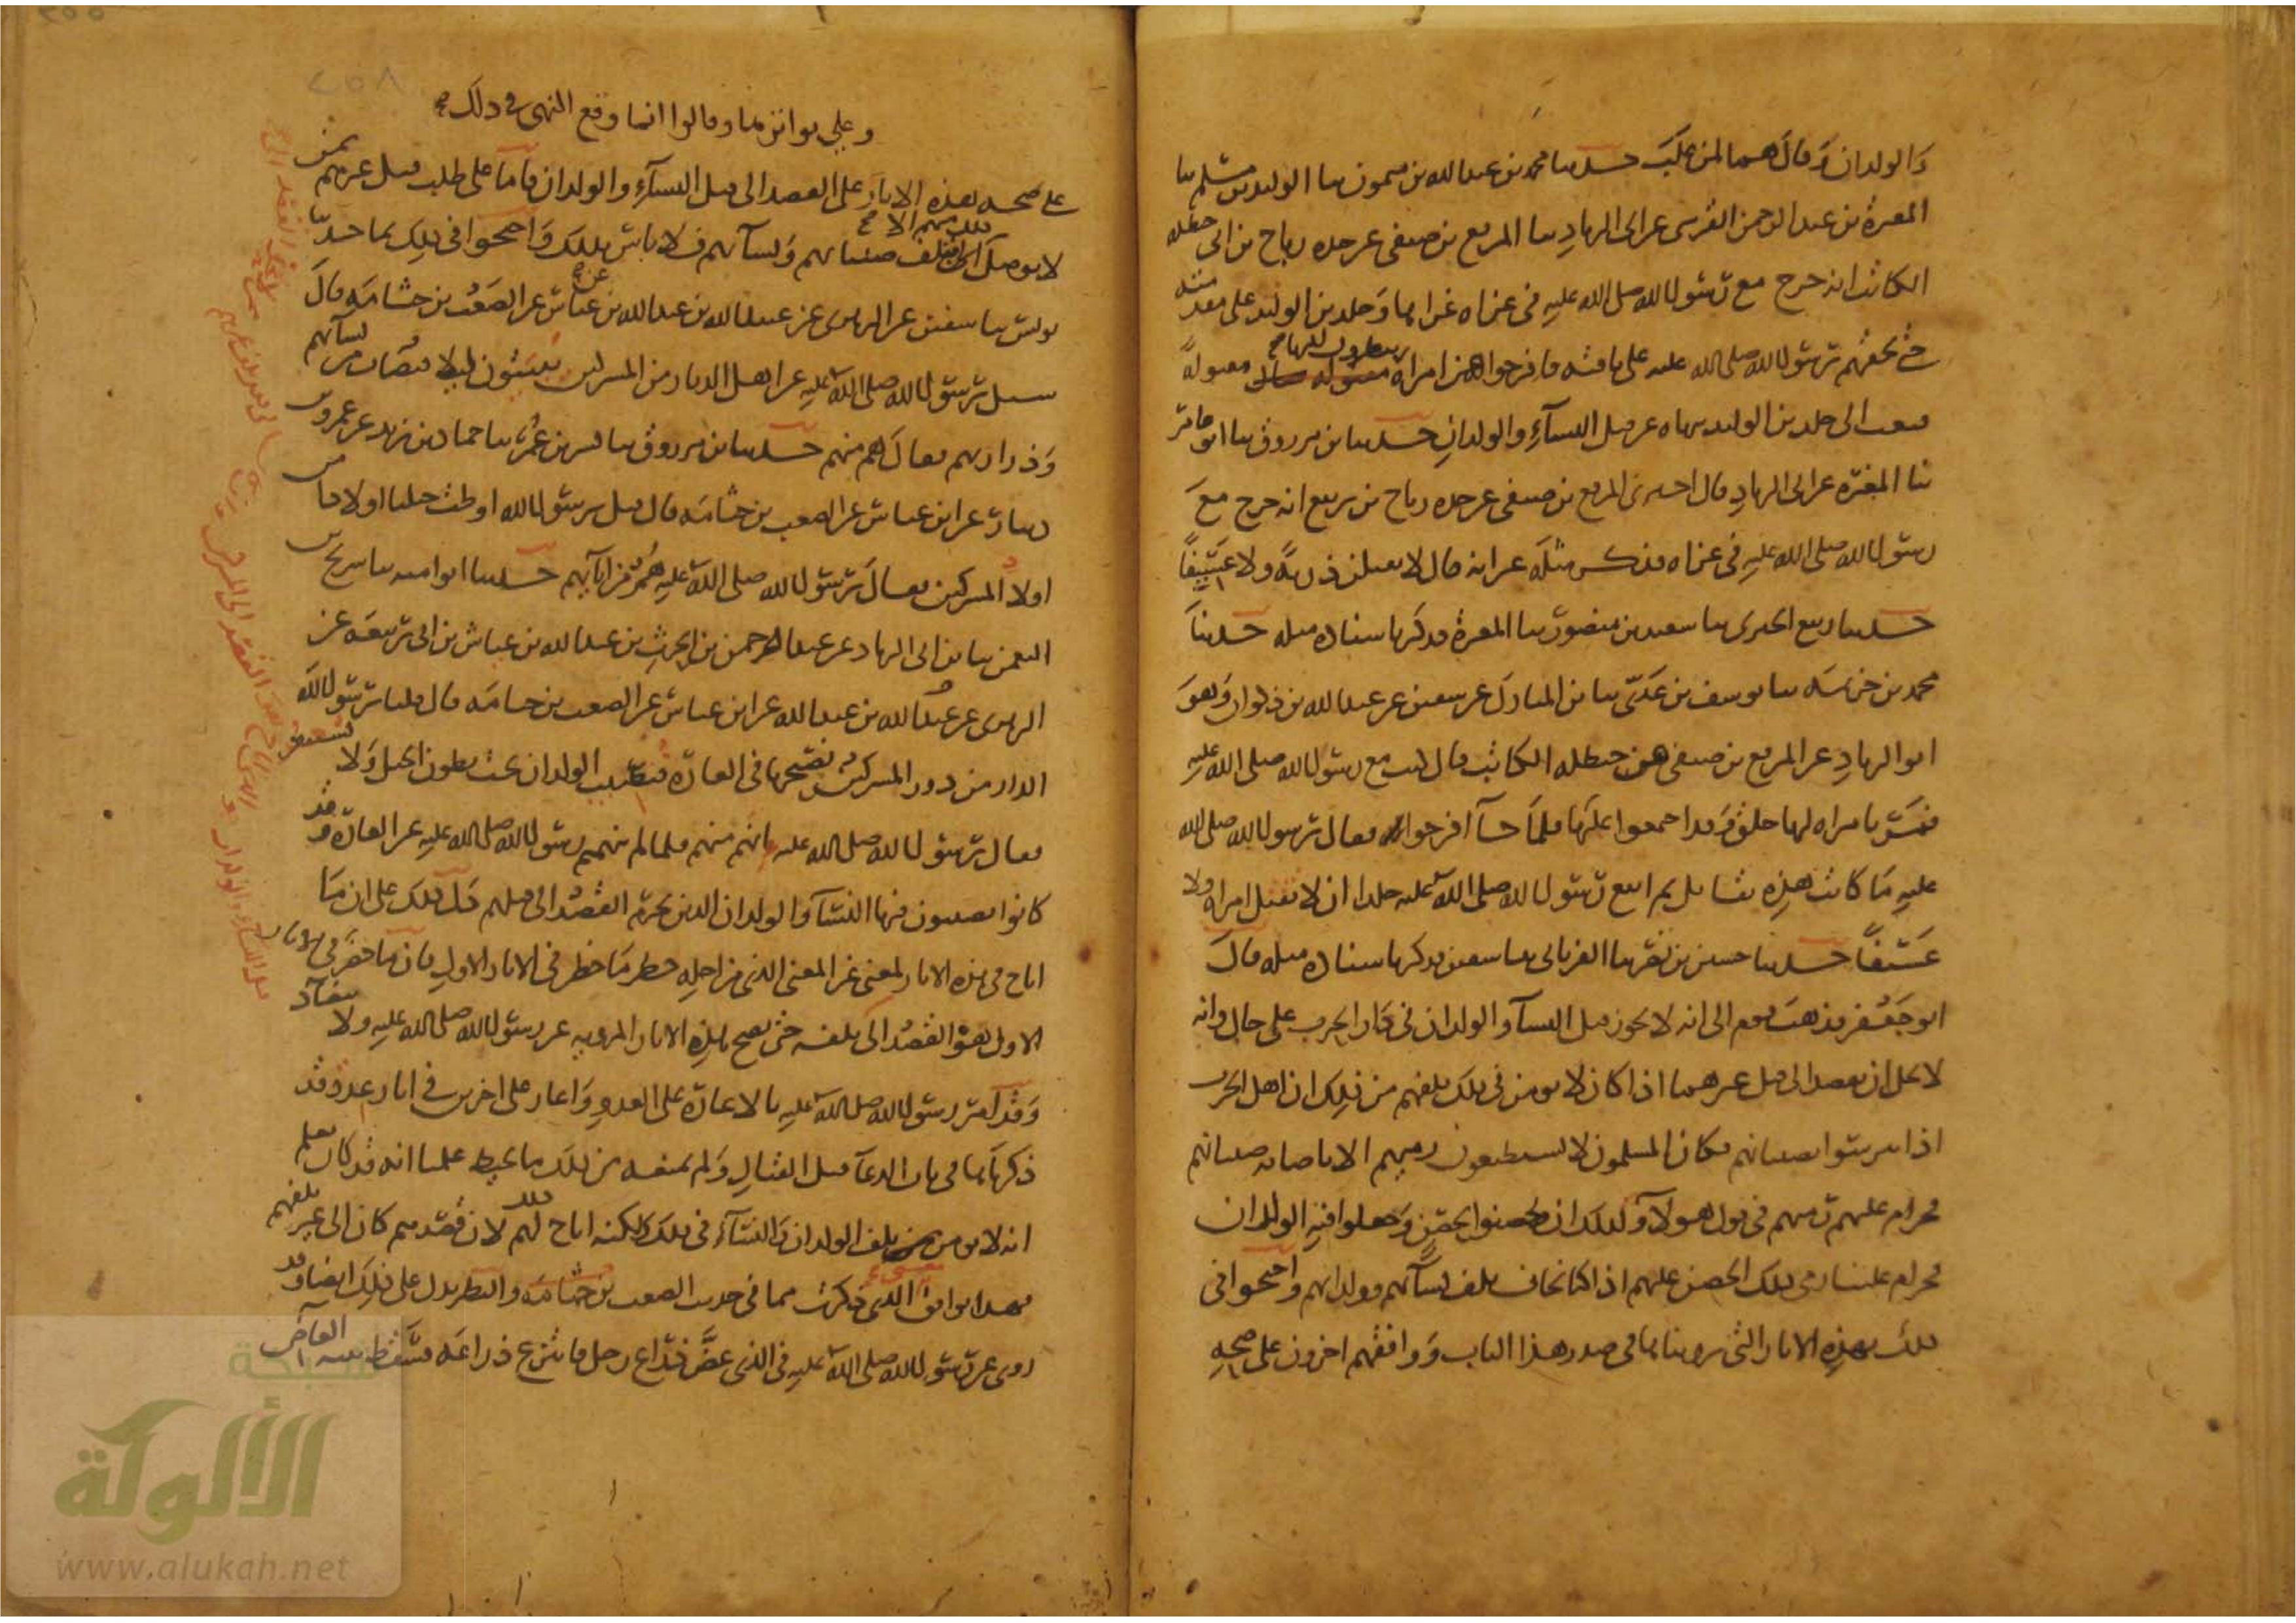 والولدان وقال هما لمن غلب حدثنا محمد بن عبد الله بن ميمون ثنا الوليد بن مسلم ثنا
المغيرة بن عبد الرحمن القرشي عن ابي الزناد ثنا المرقع بن صيفي عن جده رباح بن ابي حنظلة
الكاتب انه خرج مع رسول الله صلى الله عليه في غزاة غزاها وخلد بن الوليد على مقدمته
حتى لحقهم رسول الله صلى الله عليه على ناقته فافرجوا عن امراة ينظرون اليها مقتولة
فبعث الى خلد بن الوليد ينهاه عن قتل النساء والولدان حدثنا بن مرزوق ثنا ابو عامر
ثنا المغيرة عن ابي الزناد قال اخبرني المرقع بن صيفي عن جده رباح بن ربيع انه خرج مع
رسول الله صلى الله عليه في غزاة فذكر مثله غير انه قال لا تقتلن ذرية ولا عسيفا
حدثنا ربيع الجيزي ثنا سعيد بن منصور ثنا المغيرة فذكر باسناده مثله حدثنا
محمد بن خزيمة ثنا يوسف بن عدي ثنا بن المبارك عن سفين عن عبد الله بن ذكوان وهو
ابو الزناد عن المرقع بن صيفي عن حنظلة الكاتب قال كنت مع رسول الله صلى الله عليه
فمر بامراة لها خلق وقد اجتمعوا عليها فلما جآ افرجوا فقال رسول الله صلى الله
عليه ما كانت هذه تقاتل ثم اتبع رسول الله صلى الله عليه خلدا ان لا تقتل امراة ولا
عسيفا حدثنا حسين بن نصر ثنا الفريابي ثنا سفين فذكر باسناده مثله قال
ابو جعفر فذهب قوم الى انه لا يجوز قتل النسآ والولدان في دار الحرب على حال وانه
لا يحل ان يقصد الى قتل غيرهما اذا كان لا يومن في ذلك تلفهم من ذلك ان اهل الحرب
اذا تترسوا بصبيانهم فكان المسلمون لا يستطيعون رميهم الا باصابة صبيانهم
فحرام عليهم رميهم في قول هولآ وكذلك ان تحصنوا بحصن وجعلوا فيه الولدان
فحرام علينا رمي ذلك الحصن عليهم اذا كنا نخاف تلف نسآئهم وولدانهم واحتجوا في
ذلك بهذه الاثار التي رويناها في صدر هذا الباب ووافقهم اخرون على صحة
وعلى تواترها وقالوا انما وقع النهي في ذلك
على صحة هذه الاثار على القصد الى قتل النسآء والولدان فاما على طلب قتل غيرهم ممن
لا يوصل الى ذلك منهم الا بتلف صبيانهم ونسآئهم فلا باس بذلك واحتجوا في ذلك بما حدثنا
يونس ثنا سفين عن الزهري عن عبيد الله بن عبد الله عن بن عباس عن الصعب بن جثامة قال
سئل رسول الله صلى الله عليه عن اهل الديار من المشركين يبيتون ليلا فيصاب من نسآئهم
وذراريهم فقال هم منهم حدثنا بن مرزوق ثنا بشر بن عمر ثنا حماد بن زيد عن عمرو بن
دينار عن ابن عباس عن الصعب بن جثامة قال قيل يرسول الله اوطت خيلنا اولادا من
اولاد المشركين فقال رسول الله صلى الله عليه هم من ابآئهم حدثنا ابو امية ثنا سريج بن
النعمن ثنا بن ابي الزناد عن عبد الرحمن بن الحرث بن عبد الله بن عياش بن ابي ربيعة عن
الزهري عن عبيد الله بن عبد الله عن ابن عباس عن الصعب بن جثامة قال قلنا يرسول الله
الدار من دور المشركين نصبحها في الغارة فنصيب الولدان تحت بطون الخيل ولا نشعر
فقال رسول الله صلى الله عليه انهم منهم فلما لم ينههم رسول الله صلى الله عليه عن الغارة وقد
كانوا يصيبون فيها النسآ والولدان الذين يحرم القصد الى قتلهم دل ذلك على ان ما
اباح في هذه الاثار لمعنى غير المعنى الذي من اجله حظر ما حظر في الاثار الاول فان ما حظر في الاثار
الاول هو القصد الى تلفه حتى تصح هذه الاثار المروية عن رسول الله صلى الله عليه ولا تتضاد
وقد امر رسول الله صلى الله عليه بالاغارة على العدو واغار على اخرين في اثار عدة قد
ذكرناها في باب الدعآ قبل القتال ولم يمنعه من ذلك ما يحيط علمنا انه قد كان يعلم
انه لا يومن تلف الولدان والنسآء في ذلك ولكنه اباح ذلك لهم لان قصدهم كان الى غير تلفهم
فهذا يوافق المعنى الذي ذكرت مما في حديث الصعب بن جثامة والنظر يدل على ذلك ايضا وقد
روى عن رسول الله صلى الله عليه في الذي عض ذراع رجل فانتزع ذراعه فسقطت ثنية العاض
شبكة
الألوكة
www.alukah.net